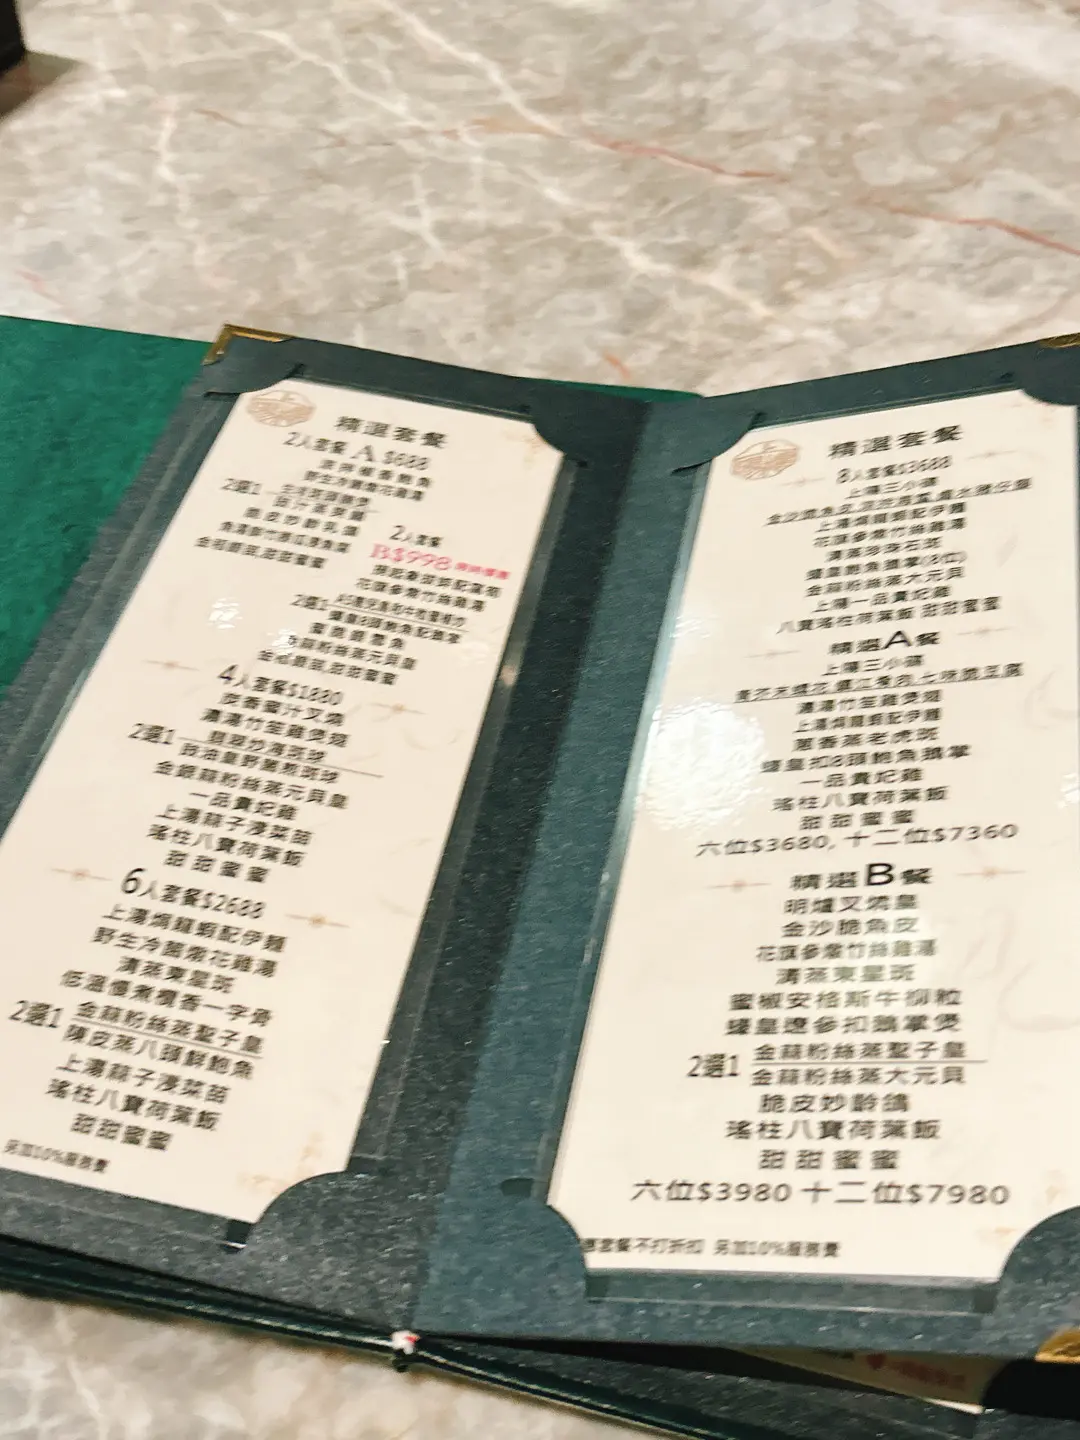 精選套餐
2人套餐 A $688
野生冷菌燉花雞湯
2選1
脆皮妙齡乳鴿
甜甜蜜蜜
2人套餐
B$998
花旗參燉竹絲雞湯
2選1
蠔皇8頭鮑魚配鵝掌
金蒜粉絲蒸元貝皇
甜甜蜜蜜
4人套餐$1880
炭香蜜汁叉燒
濃湯竹笙雞煲翅
2選1
豉油皇野菌煎斑球
金銀蒜粉絲蒸元貝皇
一品貴妃雞
上湯蒜子浸菜苗
瑤柱八寶荷葉飯
甜甜蜜蜜
6人套餐$2688
上湯焗龍蝦配伊麵
野生冷菌燉花雞湯
清蒸東星斑
低溫慢煮欖香一字骨
2選1 金蒜粉絲蒸聖子皇
陳皮蒸八頭鮮鮑魚
上湯蒜子浸菜苗
瑤柱八寶荷葉飯
甜甜蜜蜜
另加10%服務費
精選套餐
8人套餐$3688
上陽三小碟
上湯焗龍蝦配伊麵
花旗參燉竹絲雞湯
清蒸珍珠石斑
蠔皇鮑魚鵝掌(8位)
金蒜粉絲蒸大元貝
上陽一品貴妃雞
八寶瑤柱荷葉飯 甜甜蜜蜜
精選A餐
上陽三小碟
濃湯竹笙雞煲翅
上湯焗龍蝦配伊麵
蔥香蒸老虎斑
蠔皇扣8頭鮑魚鵝掌
一品貴妃雞
瑤柱八寶荷葉飯
甜甜蜜蜜
六位$3680, 十二位$7360
精選B餐
明爐叉燒皇
金沙脆魚皮
花旗參燉竹絲雞湯
清蒸東星斑
蜜椒安格斯牛柳粒
蠔皇遼參扣鵝掌煲
2選1 金蒜粉絲蒸聖子皇
金蒜粉絲蒸大元貝
脆皮妙齡鴿
瑤柱八寶荷葉飯
甜甜蜜蜜
六位$3980 十二位$7980
套餐不打折扣 另加10%服務費